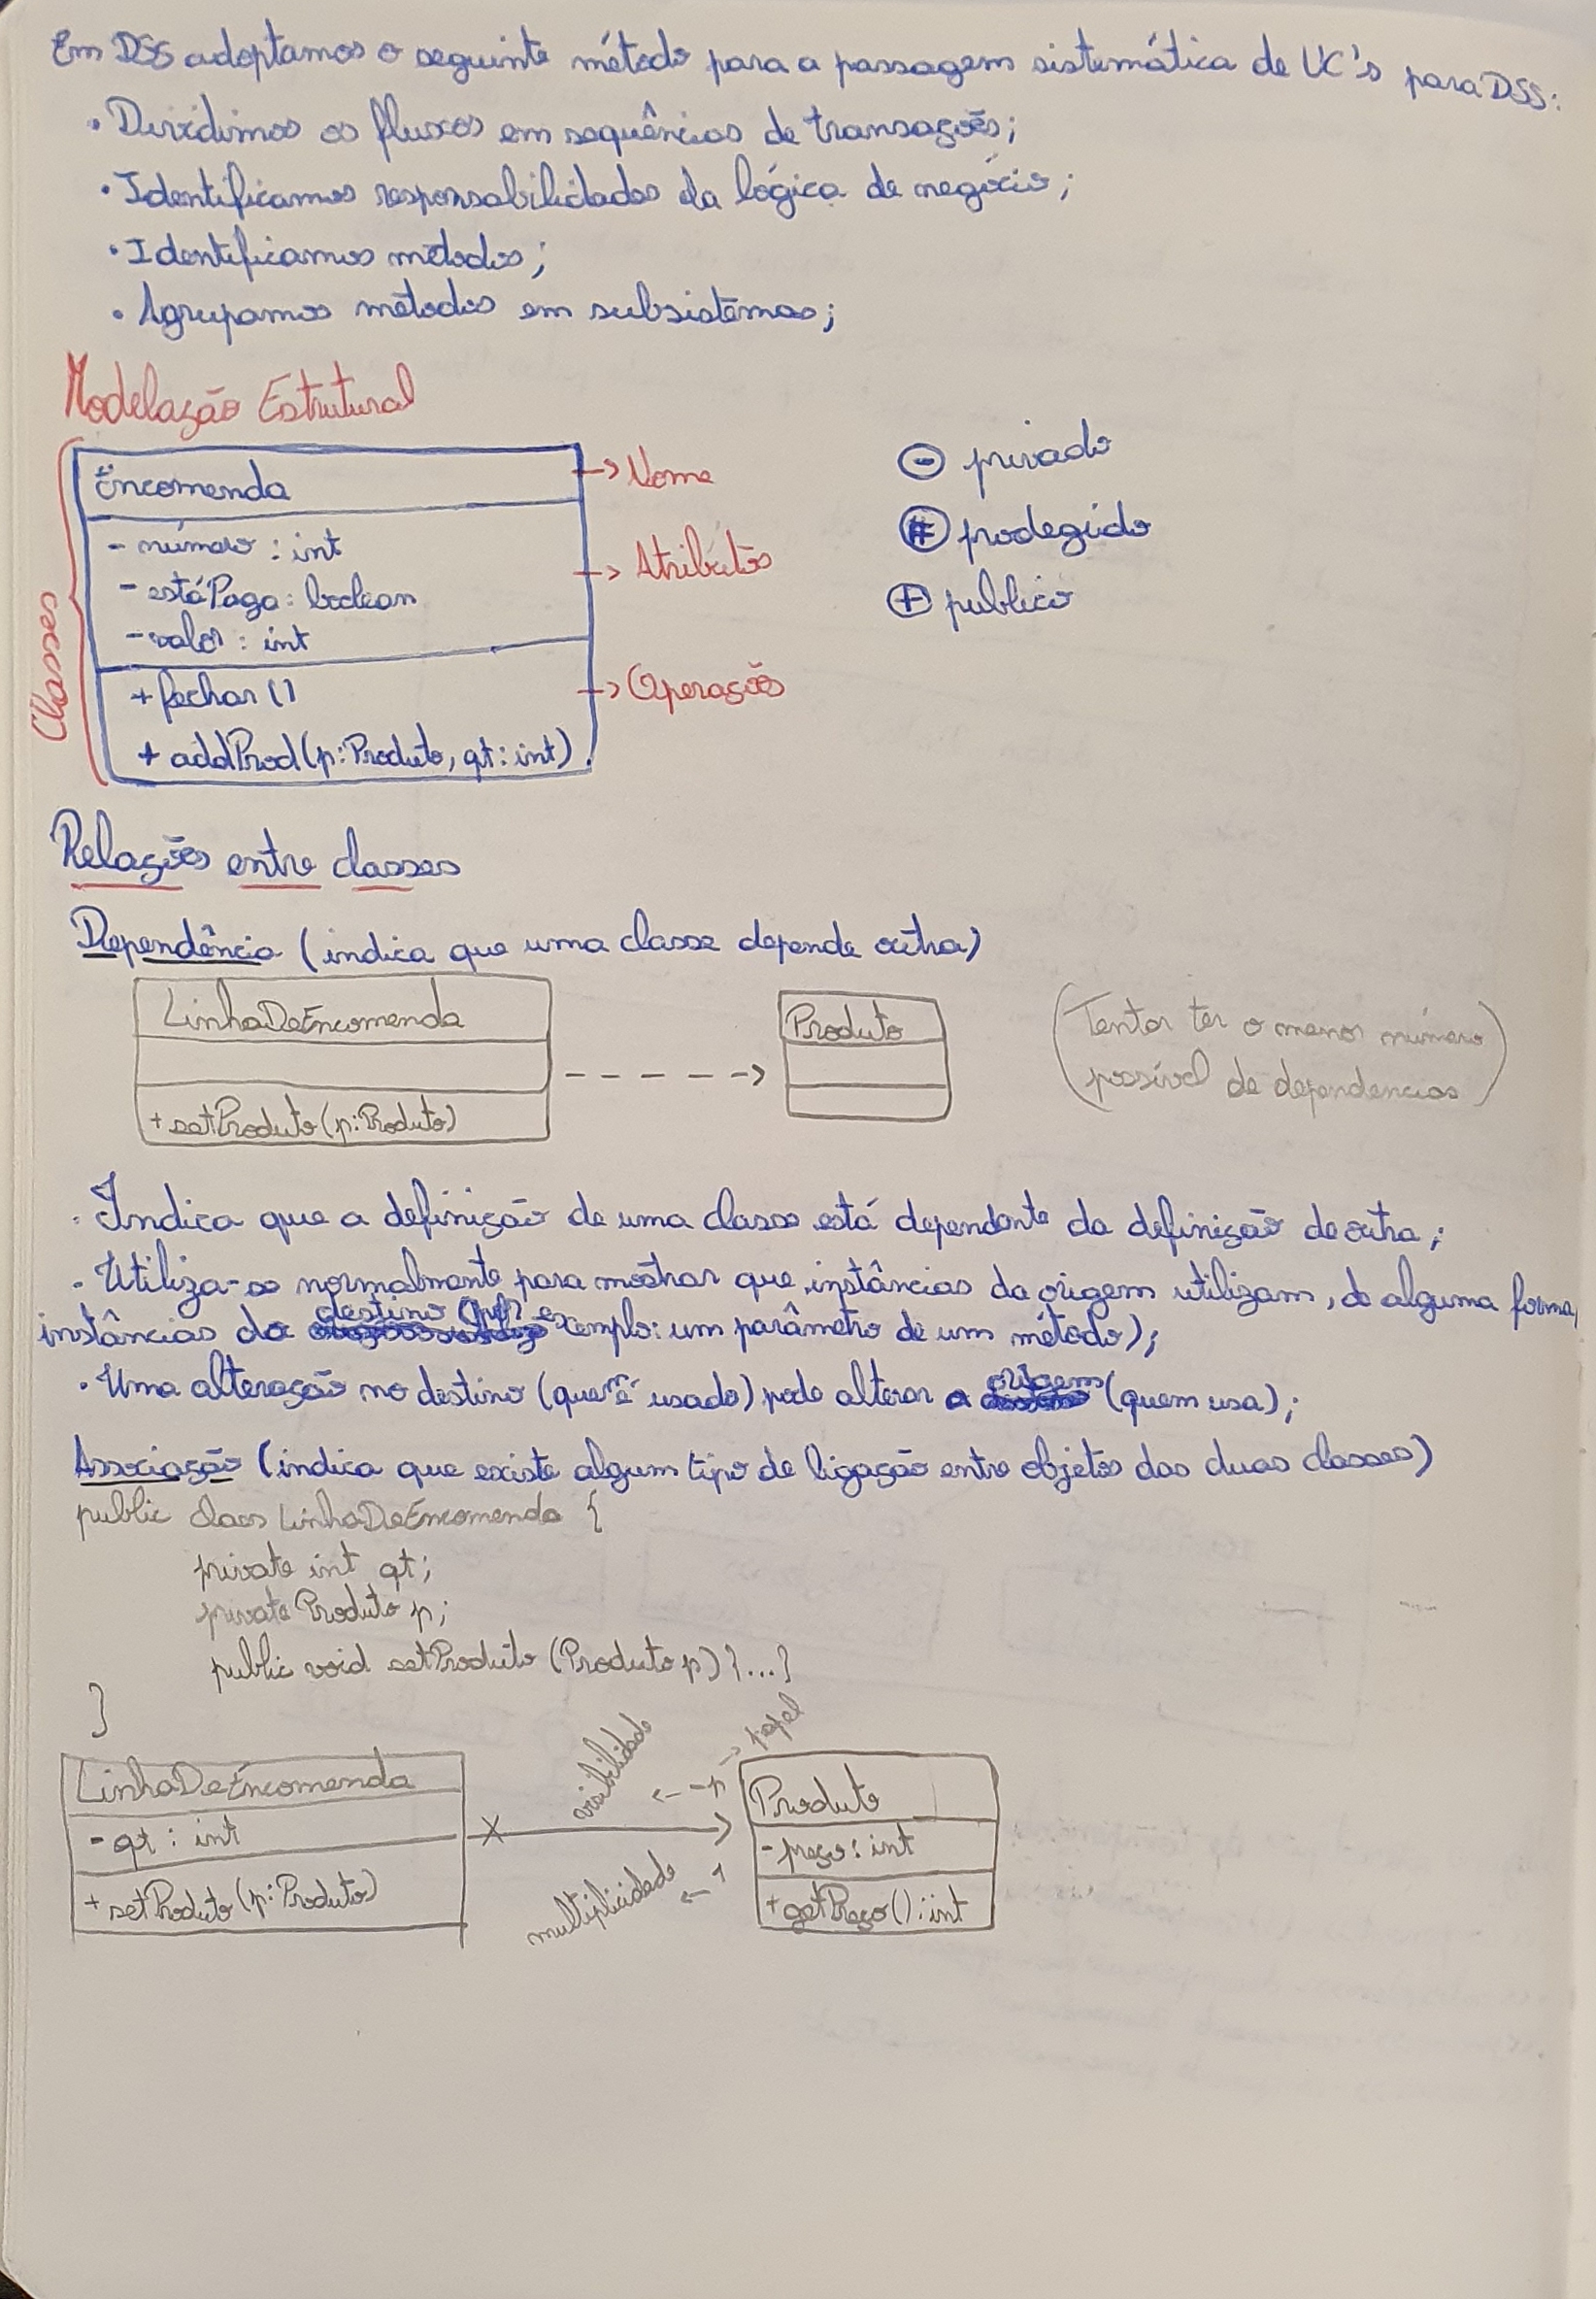 Em DSS adoptamos o seguinte método para a passagem sistemática de UC's para DSS:
· Dividimos os fluxos em sequências de transações;
· Identificamos responsabilidades da lógica de negócio;
· Identificamos métodos;
· Agrupamos métodos em subsistemas;
Modelação Estrutural
Classes
Encomenda
→ Nome
- número : int
- estáPaga : boolean
- valor : int
→ Atributos
+ fechar ()
+ addProd (p: Produto, qt : int)
→ Operações
- privado
# prodegido
+ publico
Relações entre classes
Dependência (indica que uma classe depende outra)
LinhaDeEncomenda
+ setProduto (p: Produto)
Produto
(Tentar ter o menor número
possível de dependencias)
· Indica que a definição de uma classe está dependente da definição de outra;
· Utiliza-se normalmente para mostrar que instâncias da origem utilizam, de alguma forma,
instâncias do destino (por exemplo: um parâmetro de um método);
· Uma alteração no destino (quem é usado) pode alterar a origem (quem usa);
Associação (indica que existe algum tipo de ligação entre objetos das duas classes)
public class LinhaDeEncomenda {
private int qt;
private Produto p;
public void setProduto (Produto p) {...}
}
LinhaDeEncomenda
- qt : int
+ setProduto (p: Produto)
visibilidade
- p
→ papel
multiplicidade
1
Produto
- preço : int
+ getPreço () : int